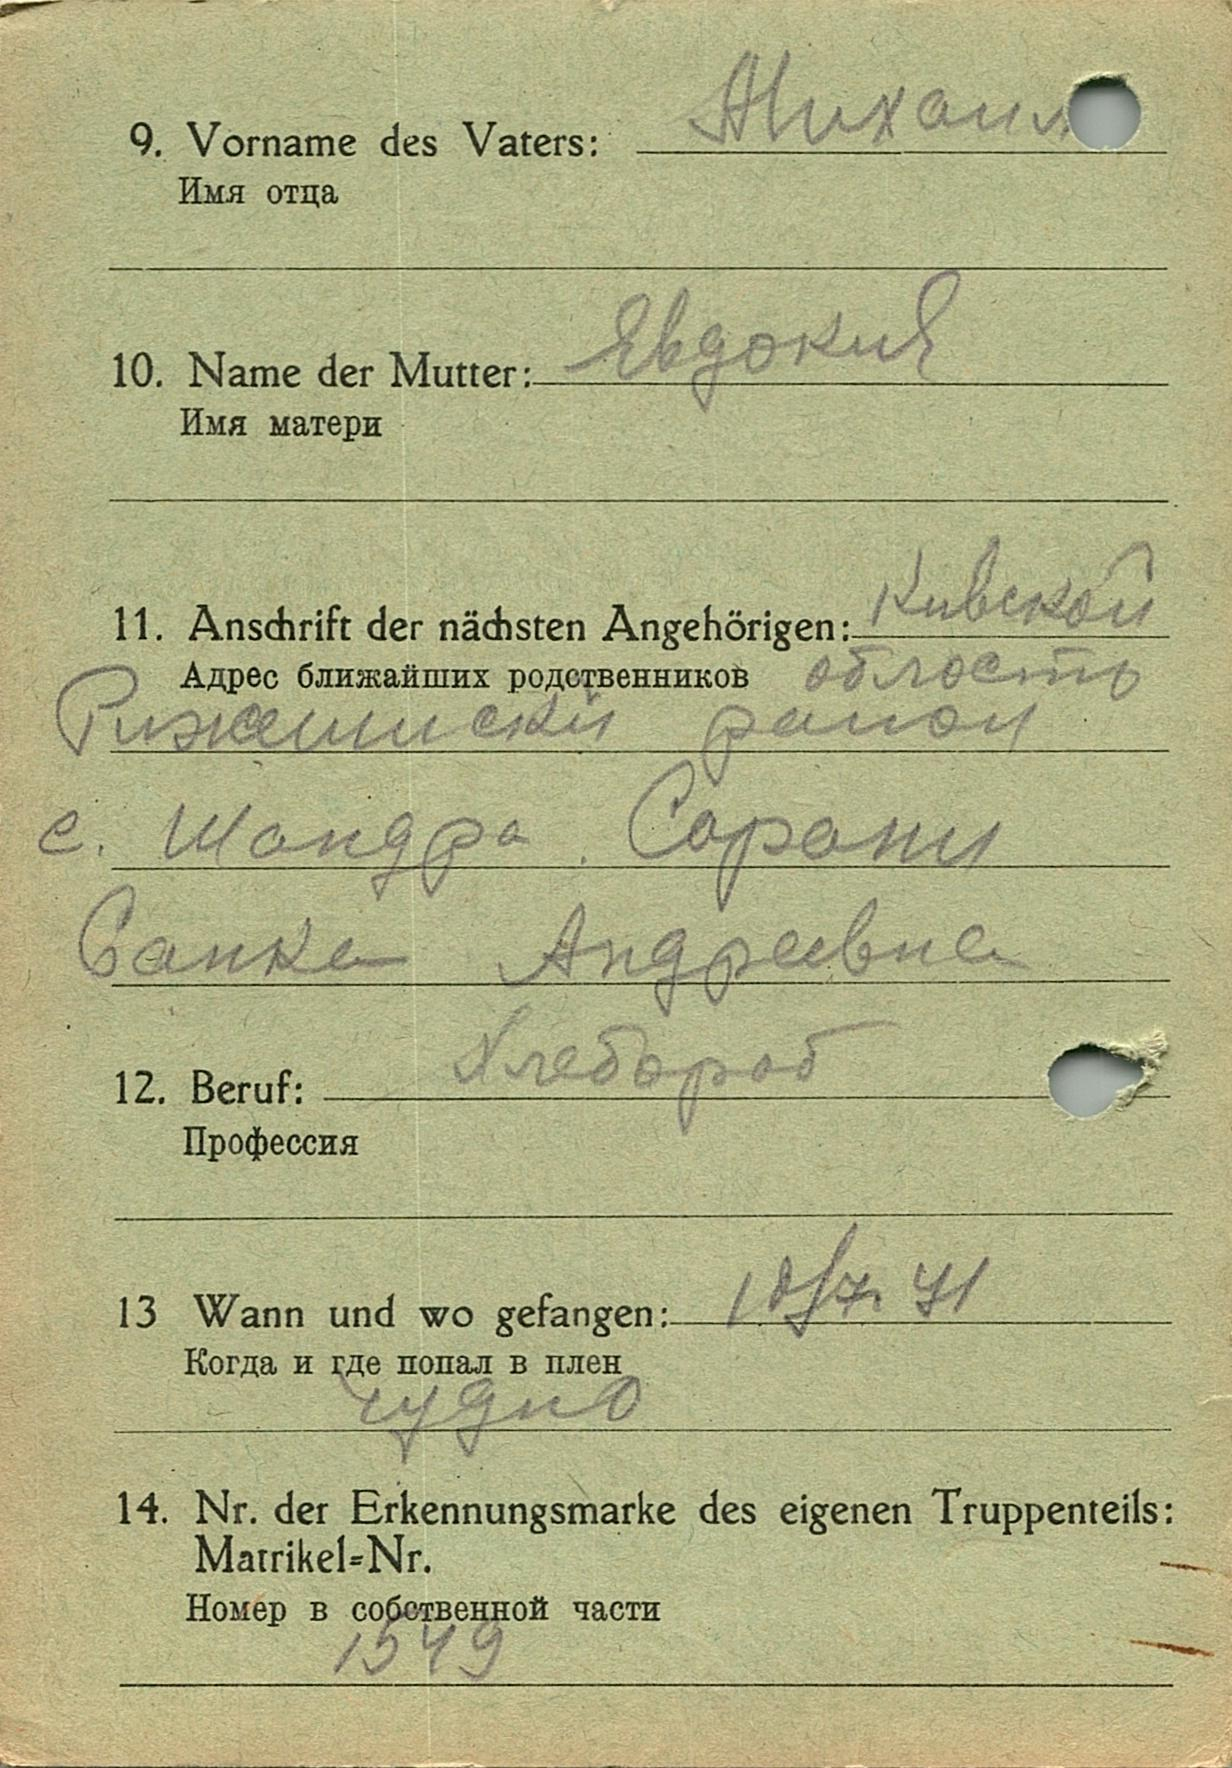 9. Vorname des Vaters: Михаил
Имя отца
10. Name der Mutter: Явдокия
Имя матери
11. Anschrift der nächsten Angehörigen: Кивской
Адрес ближайших родственников область
район
с. Шандра. Сорони
Санка Андреевна
12. Beruf: Хлебороб
Профессия
13 Wann und wo gefangen: 18/7. 41
Когда и где попал в плен
Чудно
14. Nr. der Erkennungsmarke des eigenen Truppenteils:
Matrikel=Nr.
Номер в собственной части
1549